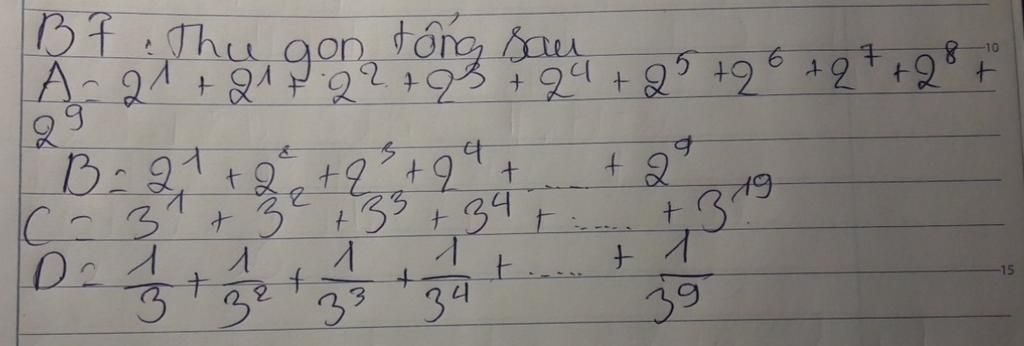 B7: Thu gọn tổng sau
A = 2¹ + 2¹ + 2² + 2³ + 2⁴ + 2⁵ + 2⁶ + 2⁷ + 2⁸ +
2⁹
B = 2¹ + 2² + 2³ + 2⁴ + ..... + 2⁹
C = 3¹ + 3² + 3³ + 3⁴ + ...... + 3¹⁹
D = 1/3 + 1/3² + 1/3³ + 1/3⁴ + ...... + 1/3⁹
10
15